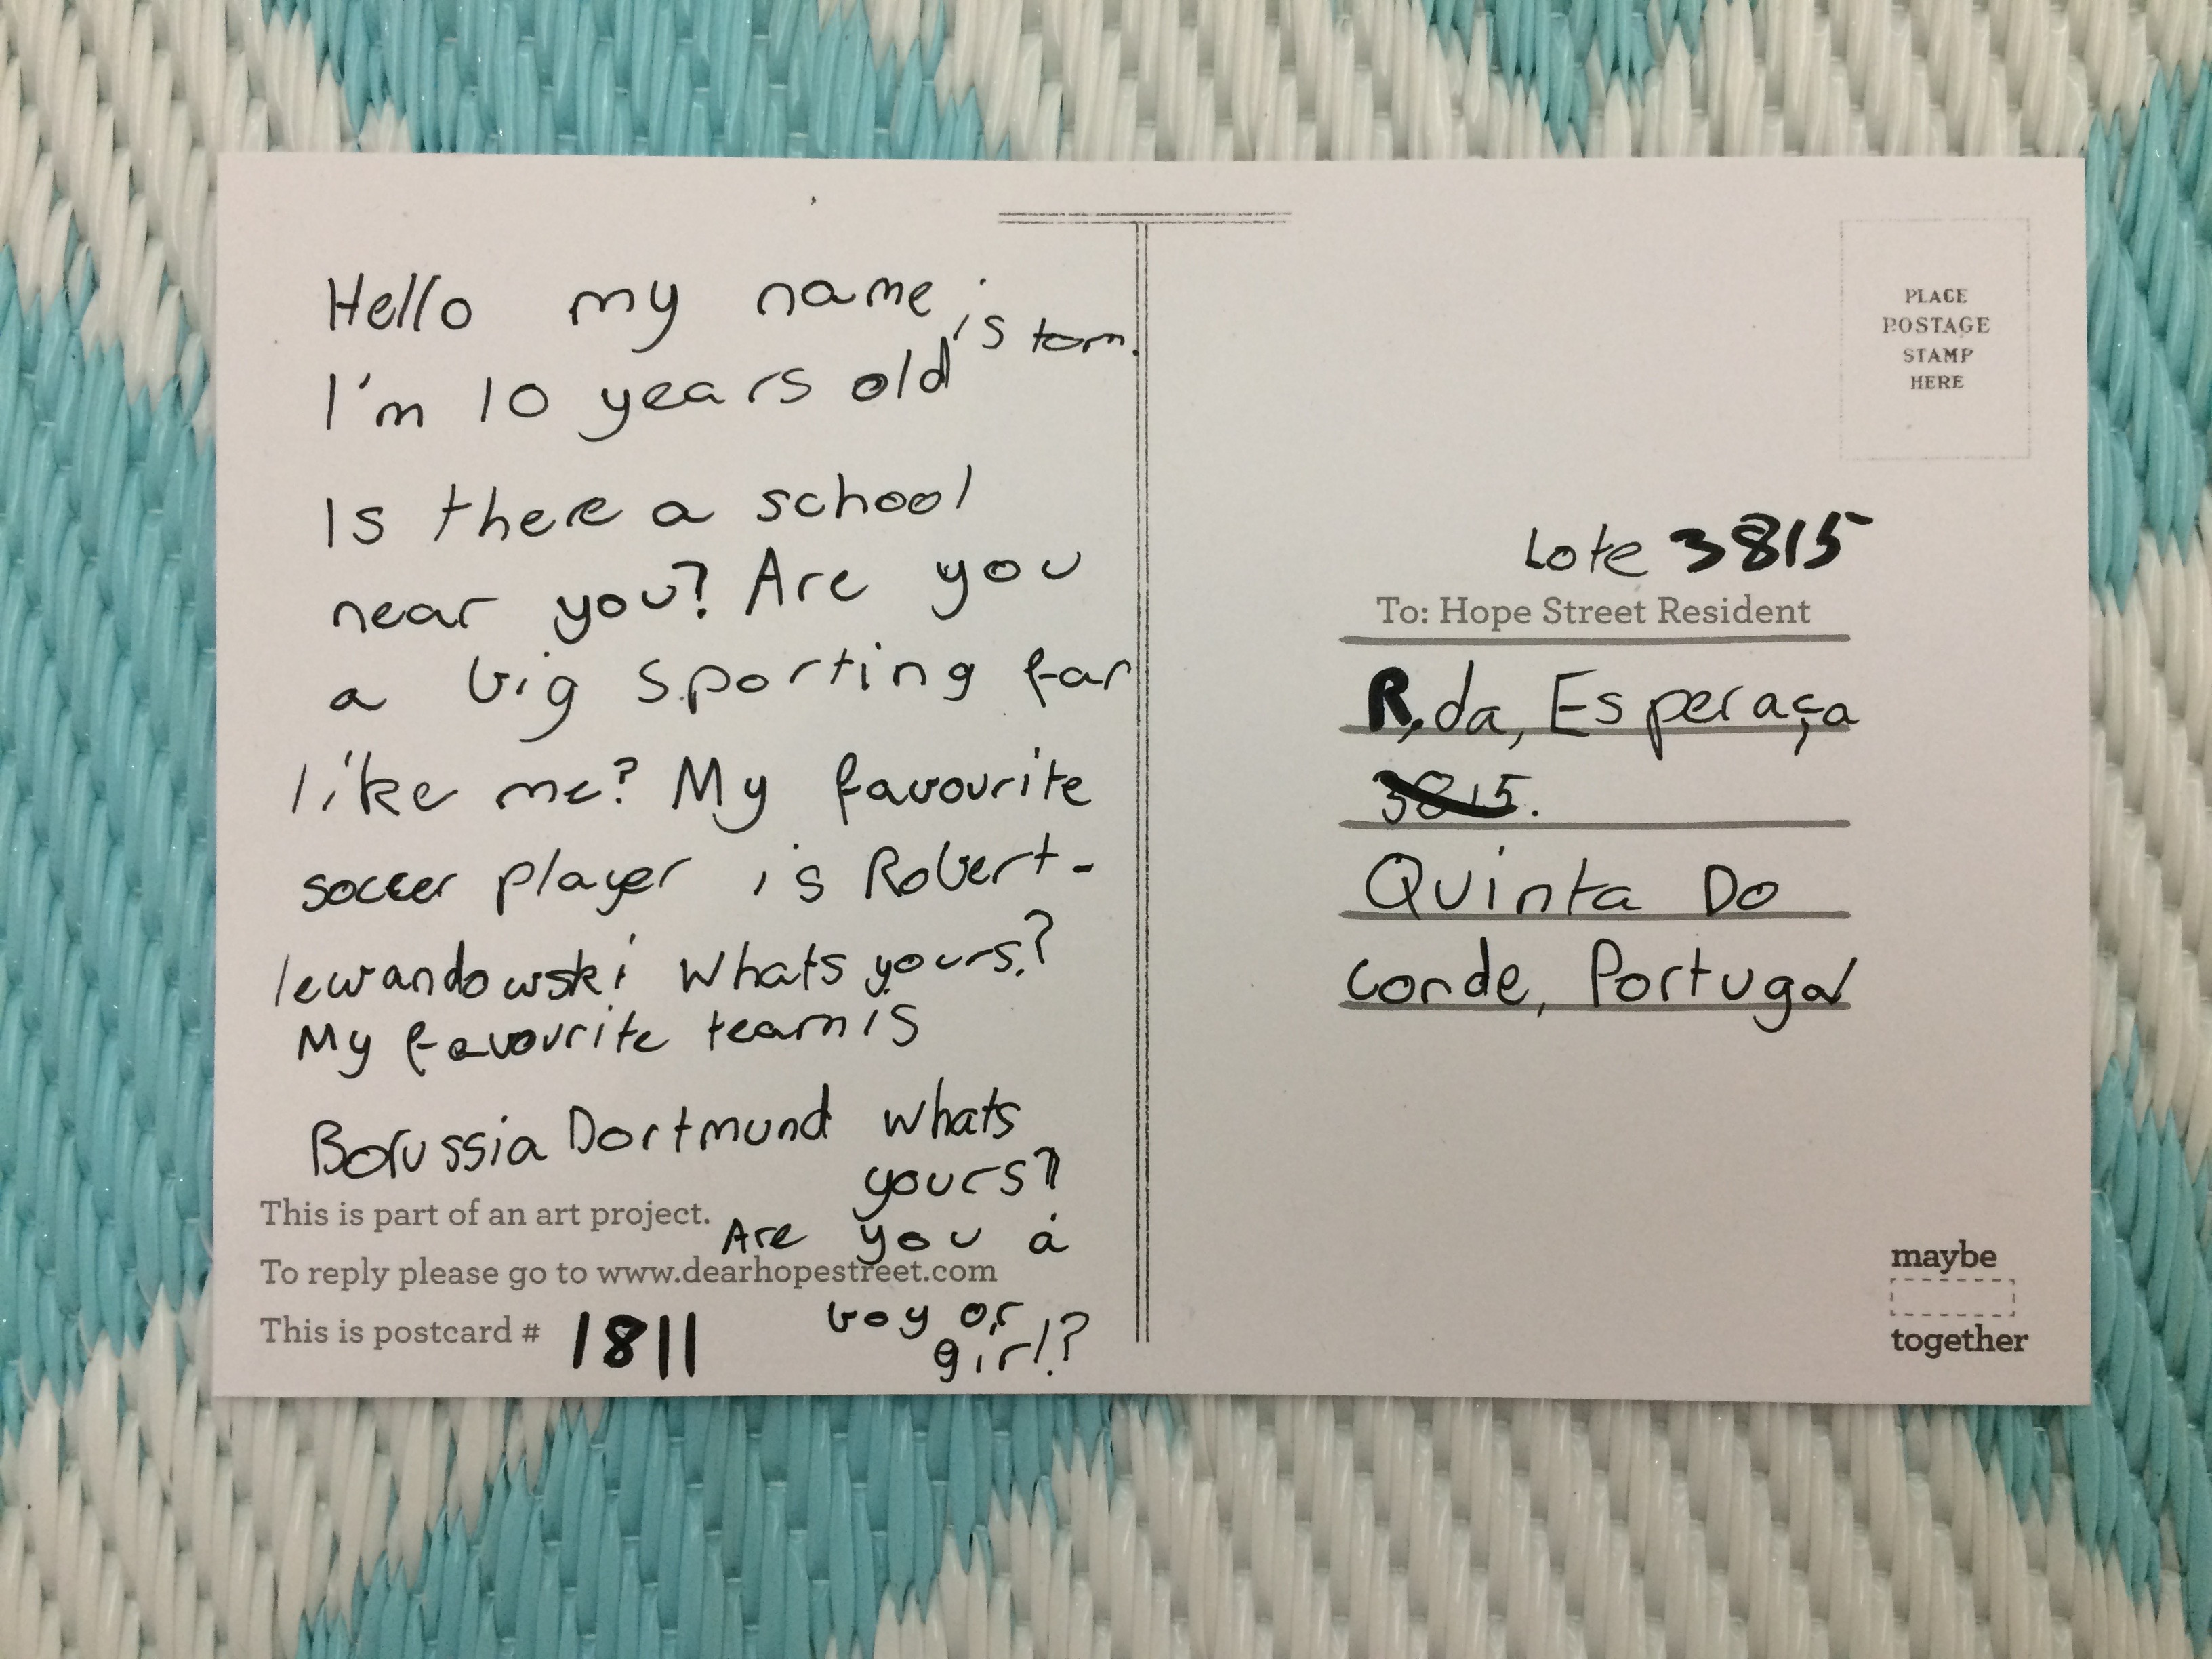 Hello my name is tom.
I'm 10 years old
Is there a school
near you? Are you
a big sporting fan
like me? My favourite
soccer player is Robert-
lewandowski Whats yours?
My favourite team is
Borussia Dortmund whats
yours?
Are you a
boy or
girl?
This is part of an art project.
To reply please go to www.dearhopestreet.com
This is postcard # 1811
PLACE
POSTAGE
STAMP
HERE
Lote 3815
To: Hope Street Resident
R, da, Esperaça
3815.
Quinta Do
conde, Portugal
maybe
together